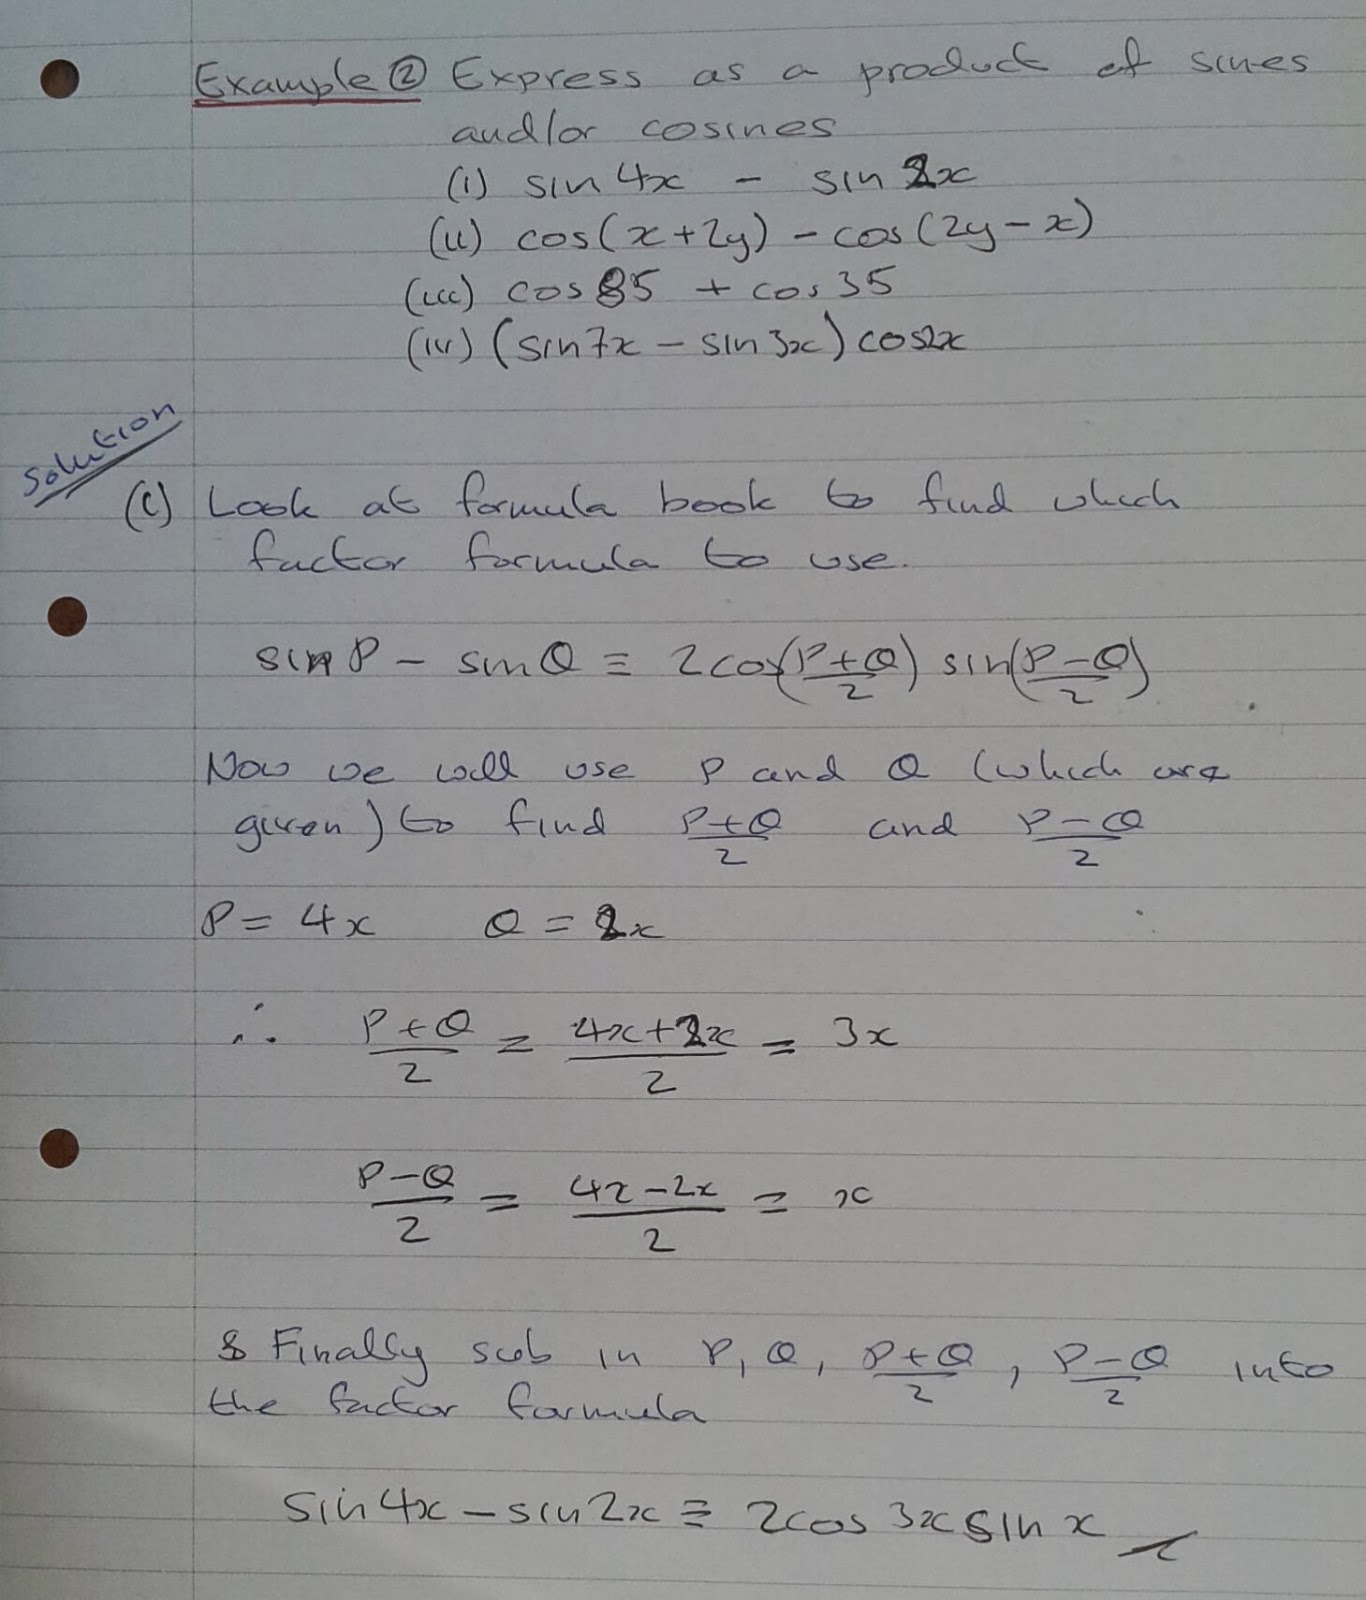 Example ② Express as a product of sines
and/or cosines
(i) sin 4x - sin 2x
(ii) cos(x+2y) - cos(2y-x)
(iii) cos 85 + cos 35
(iv) (sin 7x - sin 3x) cos 2x
Solution
(i) Look at formula book to find which
factor formula to use.
sin P - sin Q ≡ 2cos((P+Q)/2) sin((P-Q)/2)
Now we will use P and Q (which are
given) to find (P+Q)/2 and (P-Q)/2
P = 4x Q = 2x
∴ (P+Q)/2 = (4x+2x)/2 = 3x
(P-Q)/2 = (4x-2x)/2 = x
& Finally sub in P, Q, (P+Q)/2, (P-Q)/2 into
the factor formula
sin 4x - sin 2x ≡ 2cos 3x sin x